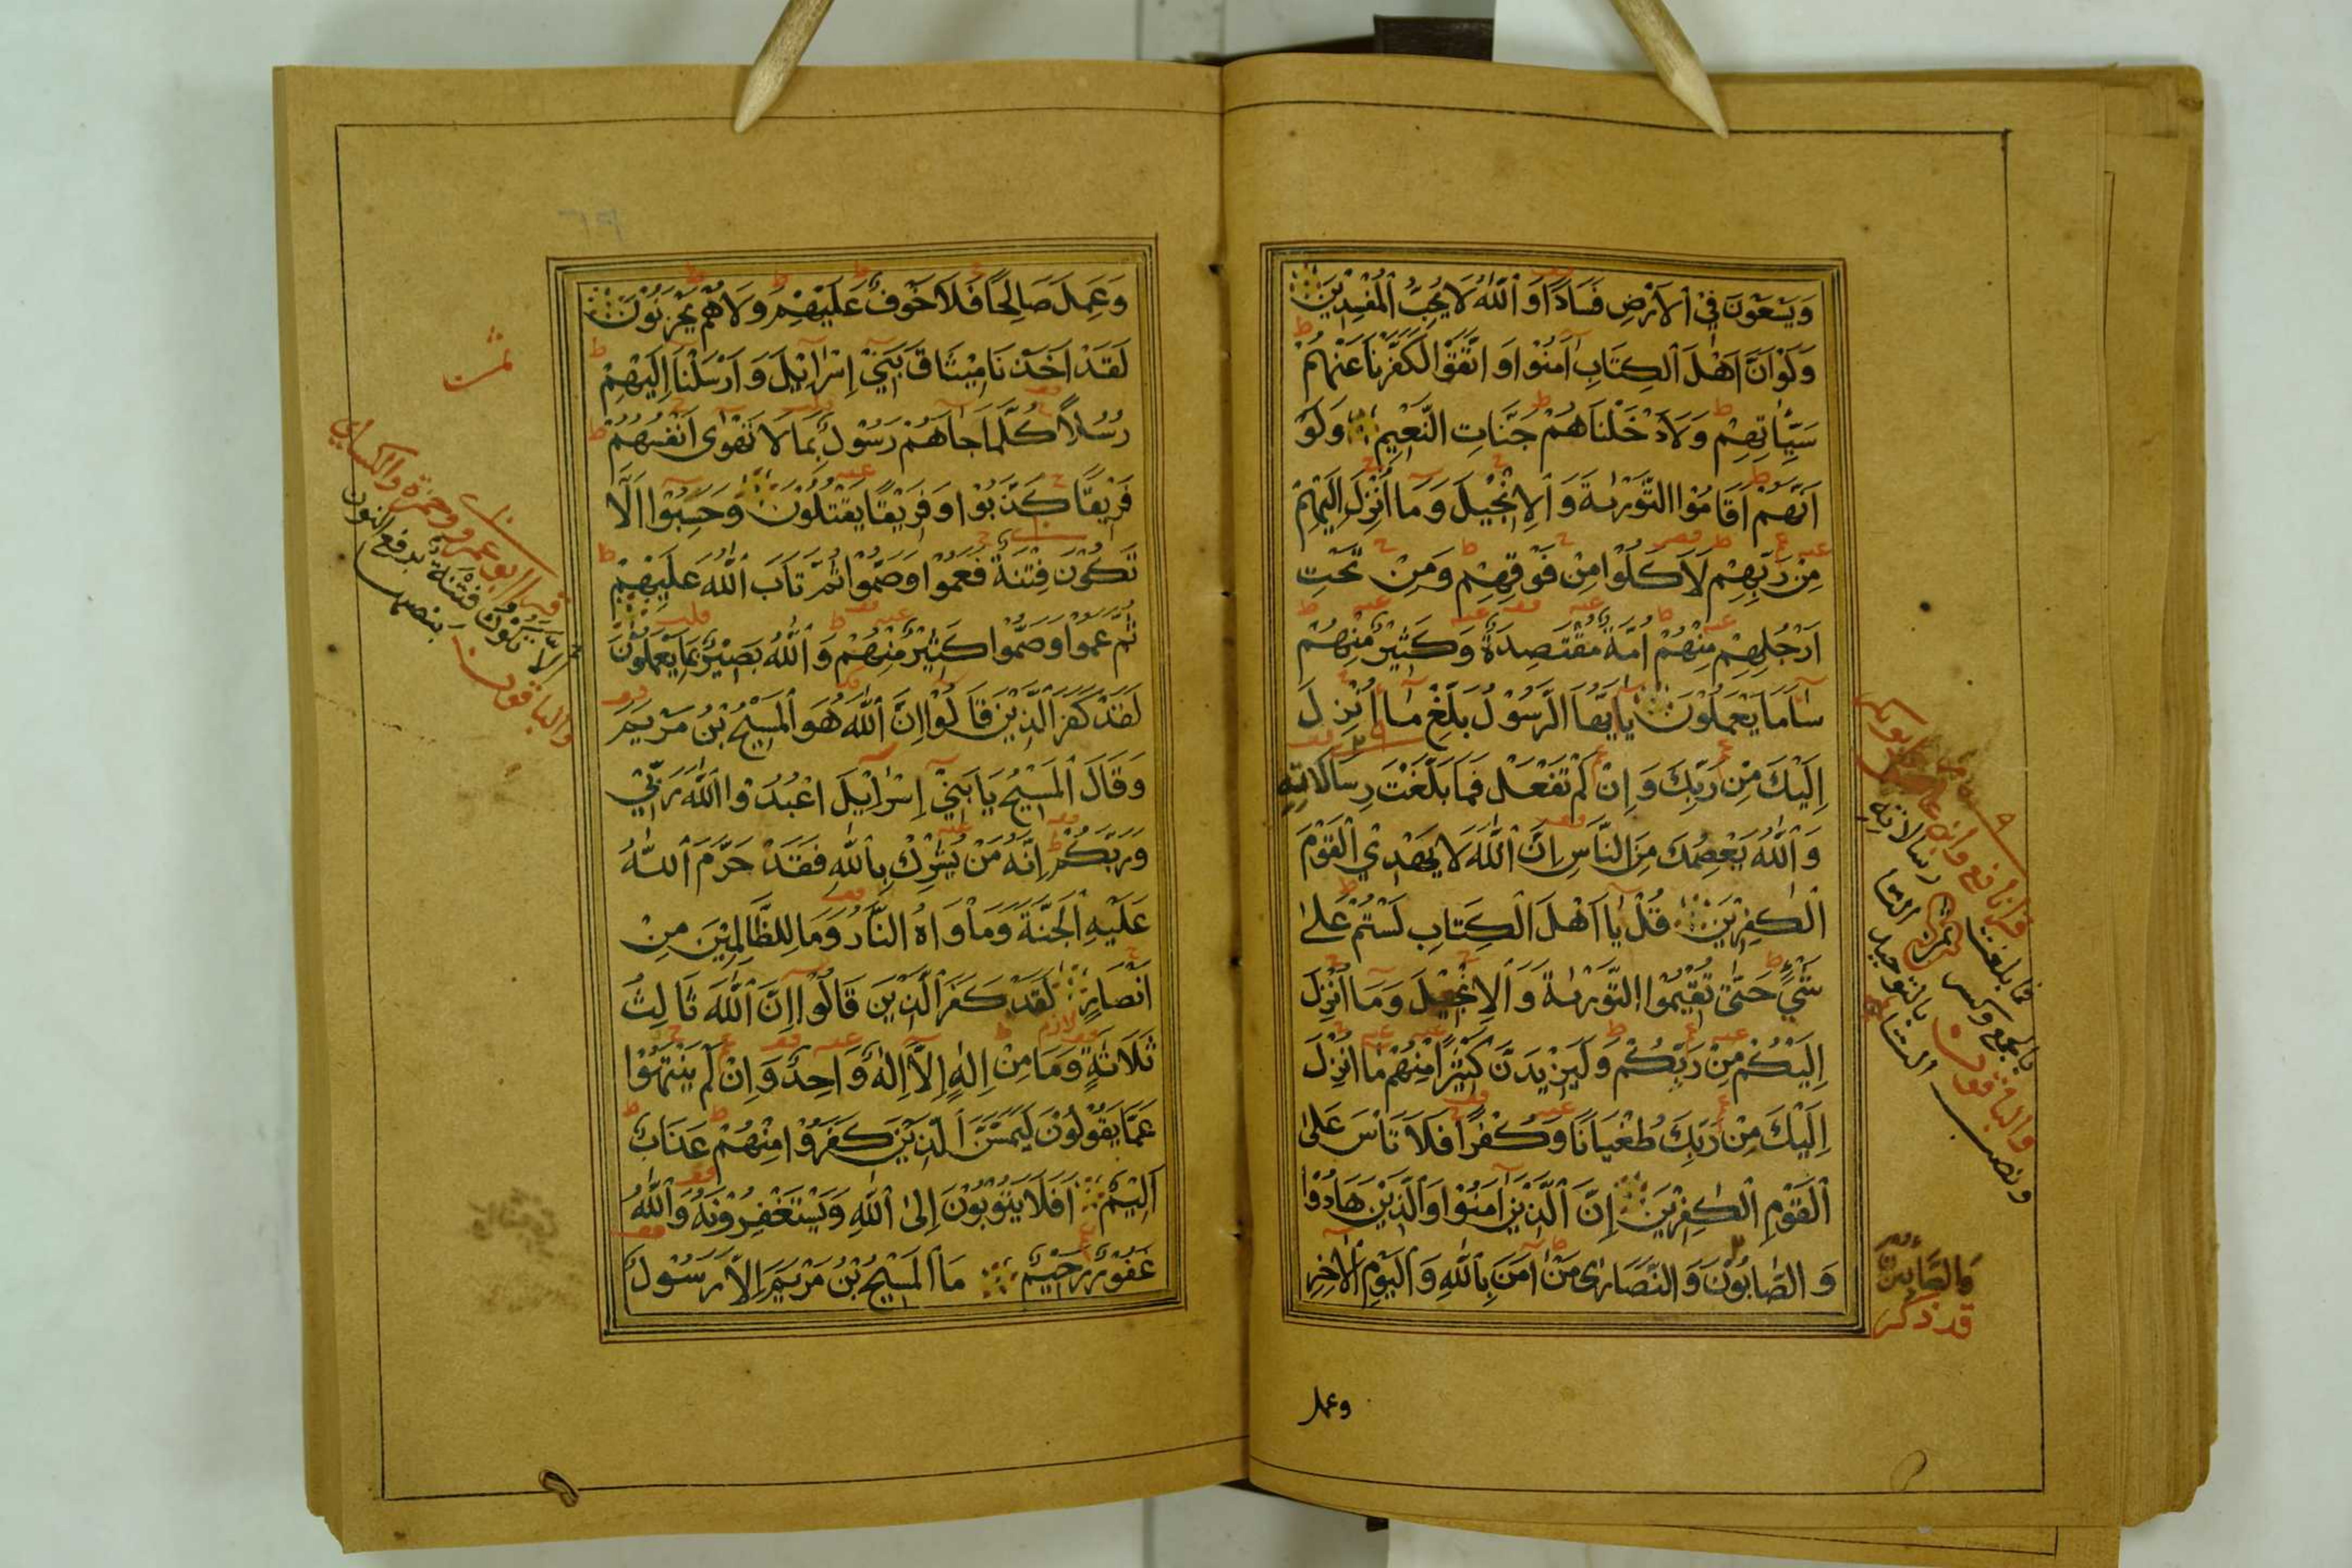 وَيَسْعَوْنَ فِي ٱلْاَرْضِ فَسَادًا وَٱللّٰهُ لَا يُحِبُّ ٱلْمُفْسِدِيْنَ
وَلَوْ اَنَّ اَهْلَ ٱلْكِتَابِ اٰمَنُوْا وَاتَّقَوْا لَكَفَّرْنَا عَنْهُمْ
سَيِّاٰتِهِمْ وَلَاَدْخَلْنَاهُمْ جَنَّاتِ النَّعِيْمِ وَلَوْ
اَنَّهُمْ اَقَامُوْا التَّوْرٰىةَ وَٱلْاِنْجِيْلَ وَمَا اُنْزِلَ اِلَيْهِمْ
مِنْ رَبِّهِمْ لَاَكَلُوْا مِنْ فَوْقِهِمْ وَمِنْ تَحْتِ
اَرْجُلِهِمْ مِنْهُمْ اُمَّةٌ مُقْتَصِدَةٌ وَكَثِيْرٌ مِنْهُمْ
سَاۤءَ مَا يَعْمَلُوْنَ يَا اَيُّهَا الرَّسُوْلُ بَلِّغْ مَا اُنْزِلَ
اِلَيْكَ مِنْ رَبِّكَ وَاِنْ لَمْ تَفْعَلْ فَمَا بَلَّغْتَ رِسَالَاتِهِ
وَٱللّٰهُ يَعْصِمُكَ مِنَ النَّاسِ اِنَّ ٱللّٰهَ لَا يَهْدِي ٱلْقَوْمَ
ٱلْكٰفِرِيْنَ قُلْ يَا اَهْلَ ٱلْكِتَابِ لَسْتُمْ عَلٰى
شَيْءٍ حَتّٰى تُقِيْمُوا التَّوْرٰىةَ وَٱلْاِنْجِيْلَ وَمَا اُنْزِلَ
اِلَيْكُمْ مِنْ رَبِّكُمْ وَلَيَزِيْدَنَّ كَثِيْرًا مِنْهُمْ مَا اُنْزِلَ
اِلَيْكَ مِنْ رَبِّكَ طُغْيَانًا وَكُفْرًا فَلَا تَاْسَ عَلٰى
ٱلْقَوْمِ ٱلْكٰفِرِيْنَ اِنَّ ٱلَّذِيْنَ اٰمَنُوْا وَٱلَّذِيْنَ هَادُوْا
وَالصَّابُوْنَ وَالنَّصَارٰى مَنْ اٰمَنَ بِٱللّٰهِ وَٱلْيَوْمِ ٱلْاٰخِرِ
وعمل
قرا نافع وابن عامر وابو بكر
فما بلغت رسالاته
بالجمع وكسر التا
والباقون بالتوحيد
ونصب التا
وَالصَّابِئُونَ
قد ذكر
وَعَمِلَ صَالِحًا فَلَا خَوْفٌ عَلَيْهِمْ وَلَا هُمْ يَحْزَنُوْنَ
لَقَدْ اَخَذْنَا مِيْثَاقَ بَنِيْ اِسْرَاۤئِيْلَ وَاَرْسَلْنَا اِلَيْهِمْ
رُسُلًا كُلَّمَا جَاۤءَهُمْ رَسُوْلٌ بِمَا لَا تَهْوٰى اَنْفُسُهُمْ
فَرِيْقًا كَذَّبُوْا وَفَرِيْقًا يَقْتُلُوْنَ وَحَسِبُوْا اَلَّا
تَكُوْنَ فِتْنَةٌ فَعَمُوْا وَصَمُّوْا ثُمَّ تَابَ ٱللّٰهُ عَلَيْهِمْ
ثُمَّ عَمُوْا وَصَمُّوْا كَثِيْرٌ مِنْهُمْ وَٱللّٰهُ بَصِيْرٌ بِمَا يَعْمَلُوْنَ
لَقَدْ كَفَرَ الَّذِيْنَ قَالُوْا اِنَّ ٱللّٰهَ هُوَ ٱلْمَسِيْحُ بْنُ مَرْيَمَ
وَقَالَ ٱلْمَسِيْحُ يَا بَنِيْ اِسْرَاۤئِيْلَ اعْبُدُوْا ٱللّٰهَ رَبِّيْ
وَرَبَّكُمْ اِنَّهُ مَنْ يُشْرِكْ بِٱللّٰهِ فَقَدْ حَرَّمَ ٱللّٰهُ
عَلَيْهِ ٱلْجَنَّةَ وَمَاْوَاهُ النَّارُ وَمَا لِلظَّالِمِيْنَ مِنْ
اَنْصَارٍ لَقَدْ كَفَرَ ٱلَّذِيْنَ قَالُوْا اِنَّ ٱللّٰهَ ثَالِثُ
ثَلَاثَةٍ وَمَا مِنْ اِلٰهٍ اِلَّا اِلٰهٌ وَاحِدٌ وَاِنْ لَمْ يَنْتَهُوْا
عَمَّا يَقُوْلُوْنَ لَيَمَسَّنَّ ٱلَّذِيْنَ كَفَرُوْا مِنْهُمْ عَذَابٌ
اَلِيْمٌ اَفَلَا يَتُوْبُوْنَ اِلٰى ٱللّٰهِ وَيَسْتَغْفِرُوْنَهُ وَٱللّٰهُ
غَفُوْرٌ رَحِيْمٌ مَا ٱلْمَسِيْحُ بْنُ مَرْيَمَ اِلَّا رَسُوْلٌ
قرا ابو عمرو وحمزة والكسائي
الّا تكون فتنة برفع النون
والباقون بنصبها